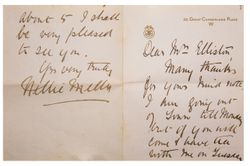 30 GREAT CUMBERLAND PLACE
W
Dear Mrs Elliston
Many thanks
for your kind note
I am going out
of Town till Monday
but if you will
come & have tea
with me on Tuesday
about 5 I shall
be very pleased
to see you.
Yrs very truly
Nellie Melba